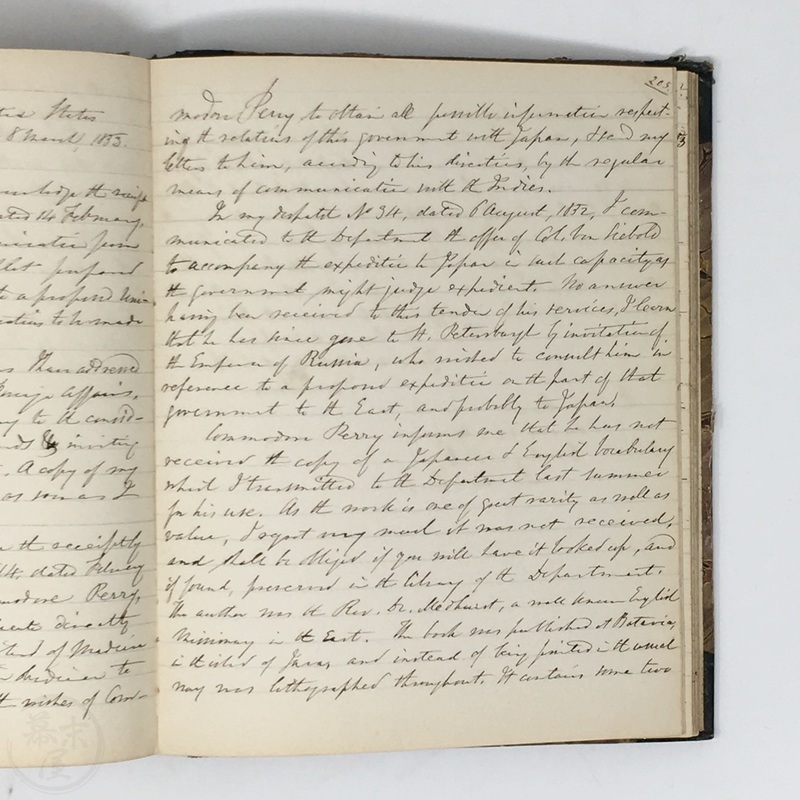 ted States
8 March, 1853.
ated 14 February,
to a proposed
to be made
Then addressed
Foreign Affairs,
to the consid-
inviting
A copy of my
as soon as I
the receipt
14, dated February
modore Perry,
directly
Island of Madeira
to
the wishes of Com-
203.
modore Perry to obtain all possible information respect-
ing the relations of this government with Japan, & send my
letters to him, according to his direction, by the regular
means of communication with the Indies.
In my despatch No 34, dated 6 August, 1852, I com-
municated to the Department the offer of Col. von Siebold
to accompany the expedition to Japan in such capacity as
the government might judge expedient. No answer
having been received to this tender of his services, I learn
that he has since gone to St. Petersburgh by invitation of
the Emperor of Russia, who wished to consult him in
reference to a proposed expedition on the part of that
government to the East, and probably to Japan.
Commodore Perry informs me that he has not
received the copy of a Japanese & English Vocabulary
which I transmitted to the Department last summer
for his use. As the work is one of great rarity as well as
value, I regret very much it was not received,
and shall be obliged if you will have it looked up, and
if found, preserved in the library of the Department.
The author was the Rev. Dr. Medhurst, a well known English
Missionary in the East. The book was published at Batavia,
in the island of Java, and instead of being printed in the usual
way was lithographed throughout. It contains some two
幕末屋